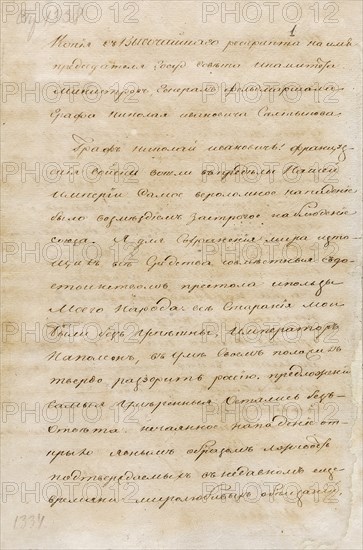 1
Копія съ Высочайшаго рескрипта на имя
председателя Госу: Совѣта и комитета
Министровъ, Генералъ Фельдмаршала
Графа Николая Ивановича Салтыкова.
Графъ Николай Ивановичь! Француз-
скія войски вошли въ предѣлы Нашей
Имперіи. Самое вероломное нападеніе
было возмѣздіемъ за строгое наблюденіе
союза. Я для сохраненія мира исто-
щилъ всѣ средства совместныя съ до-
стоинствомъ престола и пользы
Моего Народа. всѣ старанія мои
были безъ успѣшны, Императоръ
Наполеонъ, въ умѣ своемъ положилъ
твердо разорить расію. предложеніи
самыя умѣренныя остались безъ
ответа. нечаянное нападеніе от-
крыло яснымъ образомъ лживость
подтверждаемыхъ въ недавномъ еще
времяни миролюбивыхъ обещаніи.
1334